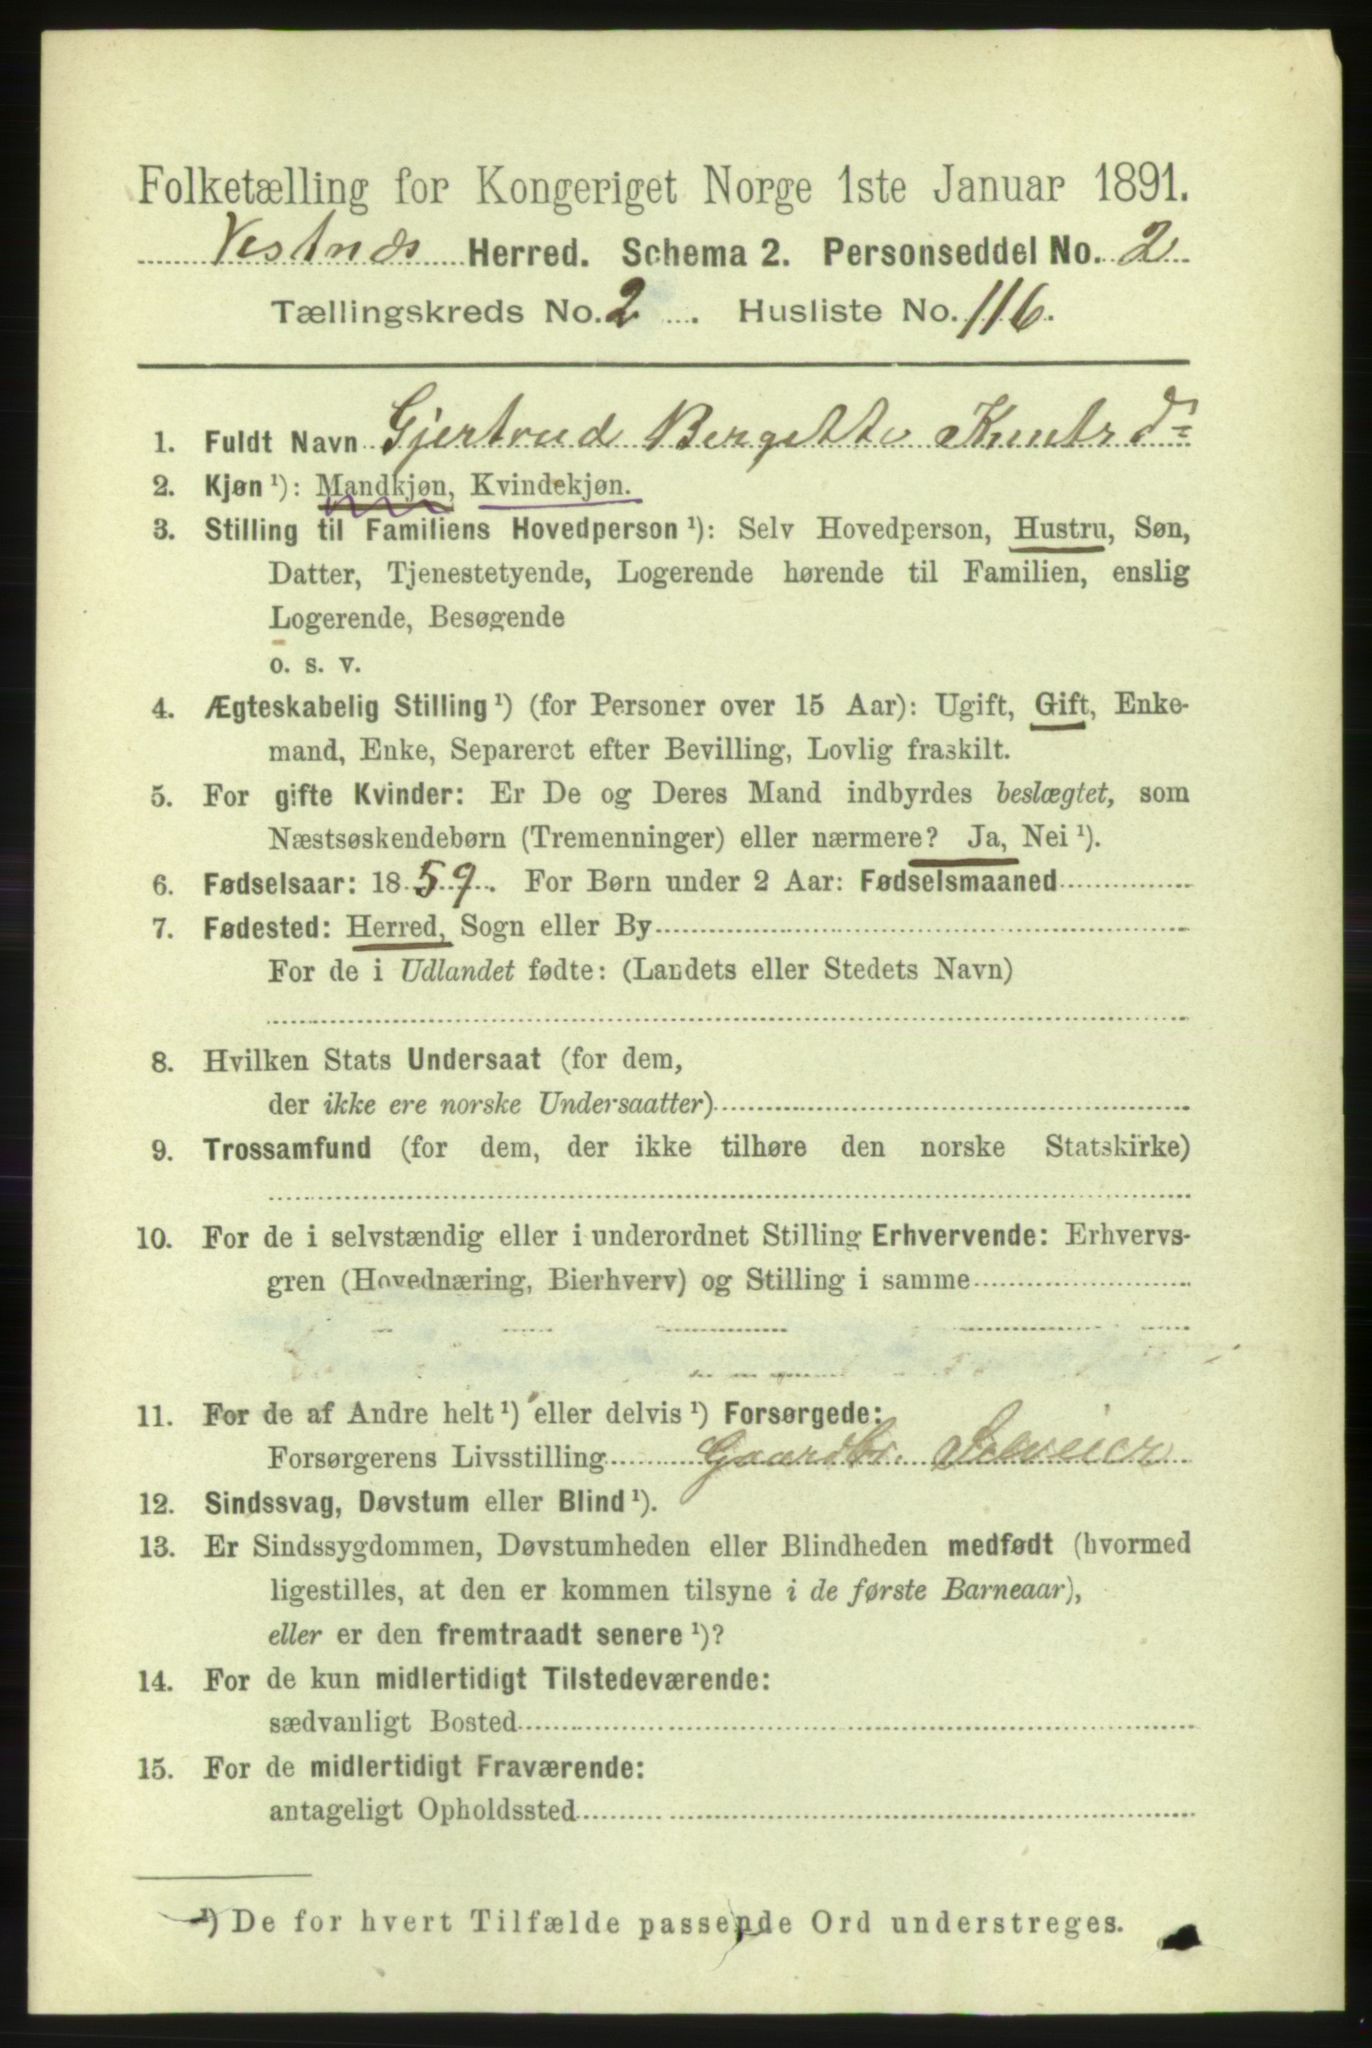 Folketælling for Kongeriget Norge 1ste Januar 1891.
Vestnæs Herred. Schema 2. Personseddel No. 2
Tællingskreds No. 2. Husliste No. 116.
1. Fuldt Navn Gjertrud Bergitte Knutsd=
2. Kjøn ¹): Mandkjøn, Kvindekjøn.
3. Stilling til Familiens Hovedperson ¹): Selv Hovedperson, Hustru, Søn,
Datter, Tjenestetyende, Logerende hørende til Familien, enslig
Logerende, Besøgende
o. s. v.
4. Ægteskabelig Stilling ¹) (for Personer over 15 Aar): Ugift, Gift, Enke-
mand, Enke, Separeret efter Bevilling, Lovlig fraskilt.
5. For gifte Kvinder: Er De og Deres Mand indbyrdes beslægtet, som
Næstsøskendebørn (Tremenninger) eller nærmere? Ja, Nei ¹).
6. Fødselsaar: 1859. For Børn under 2 Aar: Fødselsmaaned
7. Fødested: Herred, Sogn eller By
For de i Udlandet fødte: (Landets eller Stedets Navn)
8. Hvilken Stats Undersaat (for dem,
der ikke ere norske Undersaatter)
9. Trossamfund (for dem, der ikke tilhøre den norske Statskirke)
10. For de i selvstændig eller i underordnet Stilling Erhvervende: Erhvervs-
gren (Hovednæring, Bierhverv) og Stilling i samme
11. For de af Andre helt ¹) eller delvis ¹) Forsørgede:
Forsørgerens Livsstilling Gaardbr. Selveier
12. Sindssvag, Døvstum eller Blind ¹).
13. Er Sindssygdommen, Døvstumheden eller Blindheden medfødt (hvormed
ligestilles, at den er kommen tilsyne i de første Barneaar),
eller er den fremtraadt senere ¹)?
14. For de kun midlertidigt Tilstedeværende:
sædvanligt Bosted
15. For de midlertidigt Fraværende:
antageligt Opholdssted
¹) De for hvert Tilfælde passende Ord understreges.